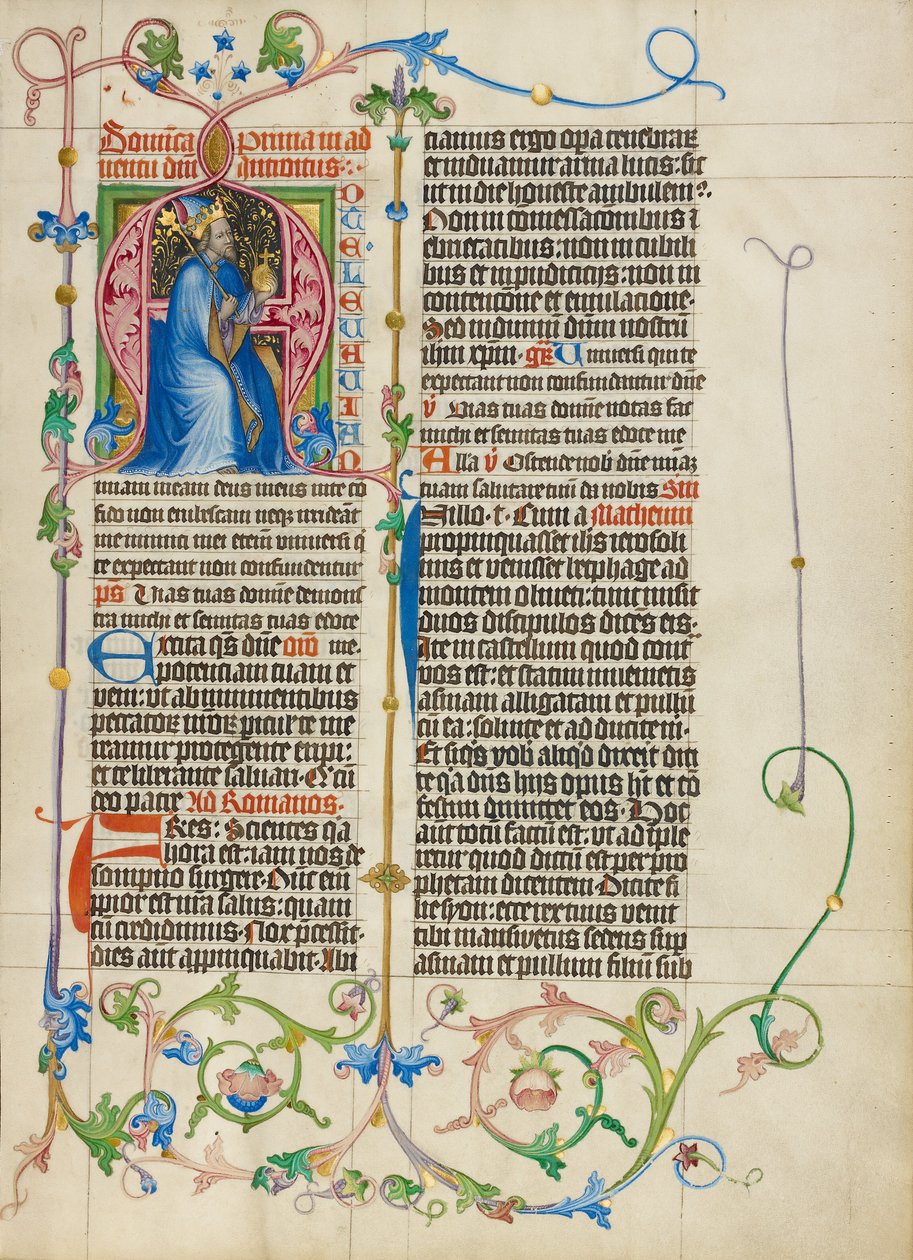 Domica prima in ad
uentu dni introitus
A
D TE LEUAUI AN
imam meam deus meus in te co
fido non erubescam neqz irrideāt
me inimici mei etenim vniuersi q
te expectant non confundentur
ps Vias tuas domine demons
tra michi et semitas tuas edoce
Excita qs dne oro me.
potentiam tuam et
veni: vt ab imminentibus
peccatoꝝ nr̄oꝝ piculꝭ te me
reamur protegente eripi:
et te liberante saluari. Q tu
deo patre Ad Romanos.
FRES: Scientes qa
hora est: iam nos de
sompno surgere. Nūc em
ꝓpior est nra salus: quam
cū credidimus. Nox pcessit:
dies aūt appinquabit. Abi
ciamus ergo opa tenebraꝝ
et induamur arma lucis: sic
ut in die honeste ambulem?.
Non in comessacionibus ⁊
ebrietatibus: non in cubili
bus et inpudicicijs: non in
contencōne et emulacione.
Sed induimī dūm nostrū
ihm xpm. gr̄ Uniuersi qui te
expectant non confundentur dūe
v Vias tuas domine notas fac
michi et semitas tuas edoce me
Alla v Ostende nob dne mīaz
tuam et salutare tuū da nobis Scdm
In illo. t. Cum a Matheum
propinquasset ihs ierosoli
mis et venisset bethphage ad
montem oliueti: tunc misit
duos discipulos dicēs eis.
Ite in castellum quod contᵃ
vos est: et statim inuenietis
asinam alligatam et pullū
cū ea: soluite et adducite mi.
Et si qs vob aliqd dixerit dici
te qa dns hijs opus ht et cō
festim dimittet eos. Hoc
aut totū factū est: vt adīple
retur quod dictū est per pro
phetam dicentem. Dicite fi
lie syon: ecce rex tuus venit
tibi mansuetus sedens sup
asinam et pullum filiū sub